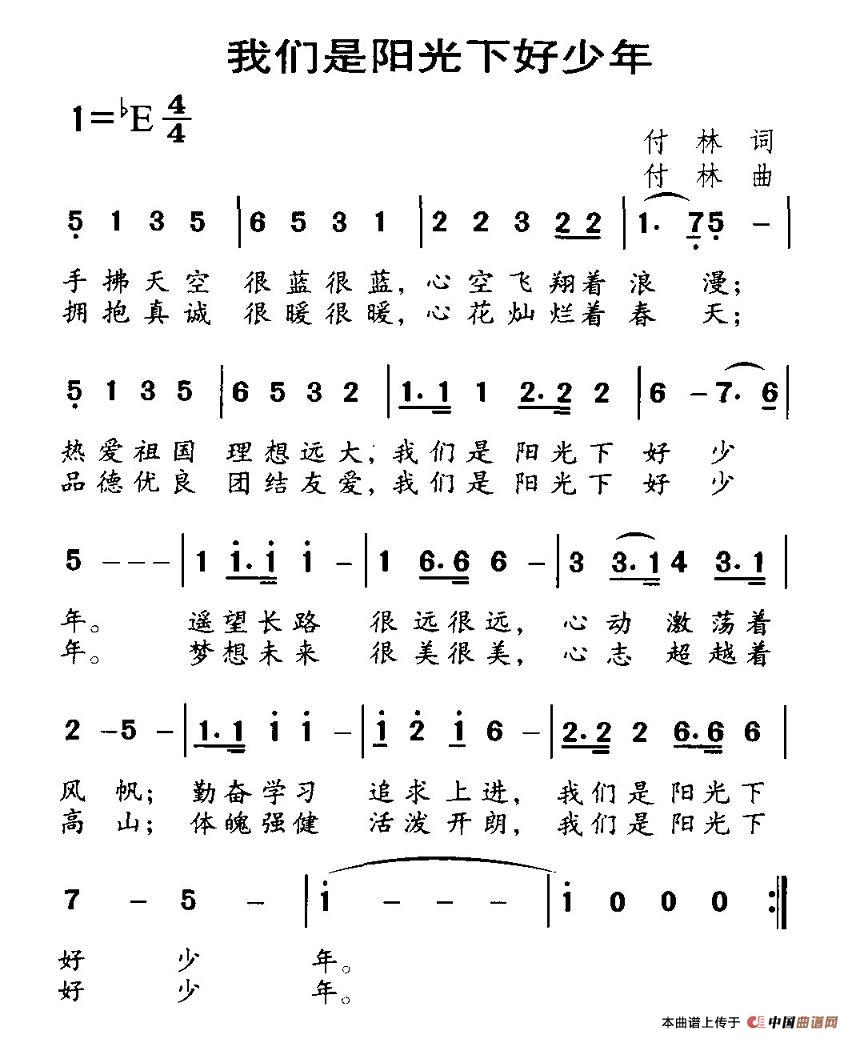 我们是阳光下好少年
1=♭E 4/4
付 林 词
付 林 曲
5 1 3 5 | 6 5 3 1 | 2 2 3 2 2 | 1. 7 5 - |
手拂天空 很蓝很蓝，心空飞翔着浪 漫；
拥抱真诚 很暖很暖，心花灿烂着春 天；
5 1 3 5 | 6 5 3 2 | 1. 1 1 2. 2 2 | 6 - 7. 6 |
热爱祖国 理想远大，我们是 阳光下 好 少
品德优良 团结友爱，我们是 阳光下 好 少
5 - - - | 1 1. 1 1 - | 1 6. 6 6 - | 3 3. 1 4 3. 1 |
年。 遥望长路 很远很远， 心动 激荡着
年。 梦想未来 很美很美， 心志 超越着
2 - 5 - | 1. 1 1 1 - | 1 2 1 6 - | 2. 2 2 6. 6 6 |
风 帆；勤奋学习 追求上进， 我们是阳光下
高 山；体魄强健 活泼开朗， 我们是阳光下
7 - 5 - | 1 - - - | 1 0 0 0 :||
好 少 年。
好 少 年。
本曲谱上传于 中国曲谱网